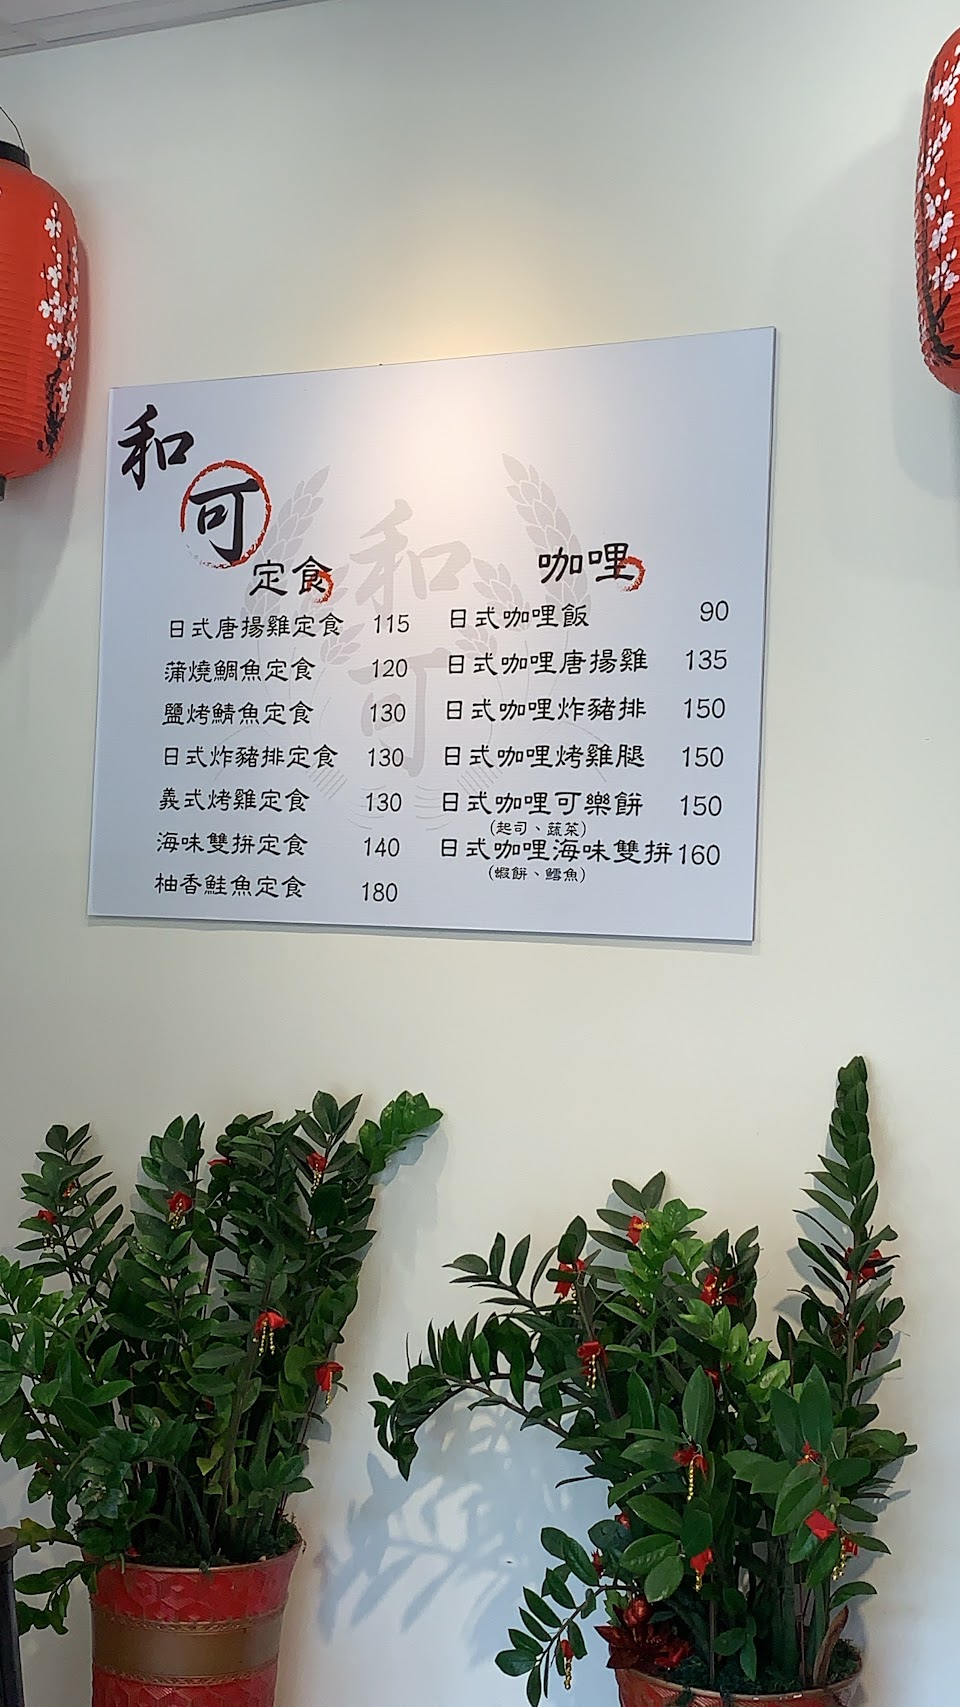 和
可
定食
日式唐揚雞定食 115
蒲燒鯛魚定食 120
鹽烤鯖魚定食 130
日式炸豬排定食 130
義式烤雞定食 130
海味雙拚定食 140
柚香鮭魚定食 180
咖哩
日式咖哩飯 90
日式咖哩唐揚雞 135
日式咖哩炸豬排 150
日式咖哩烤雞腿 150
日式咖哩可樂餅 150
(起司、蔬菜)
日式咖哩海味雙拚160
(蝦餅、鱈魚)
和
可